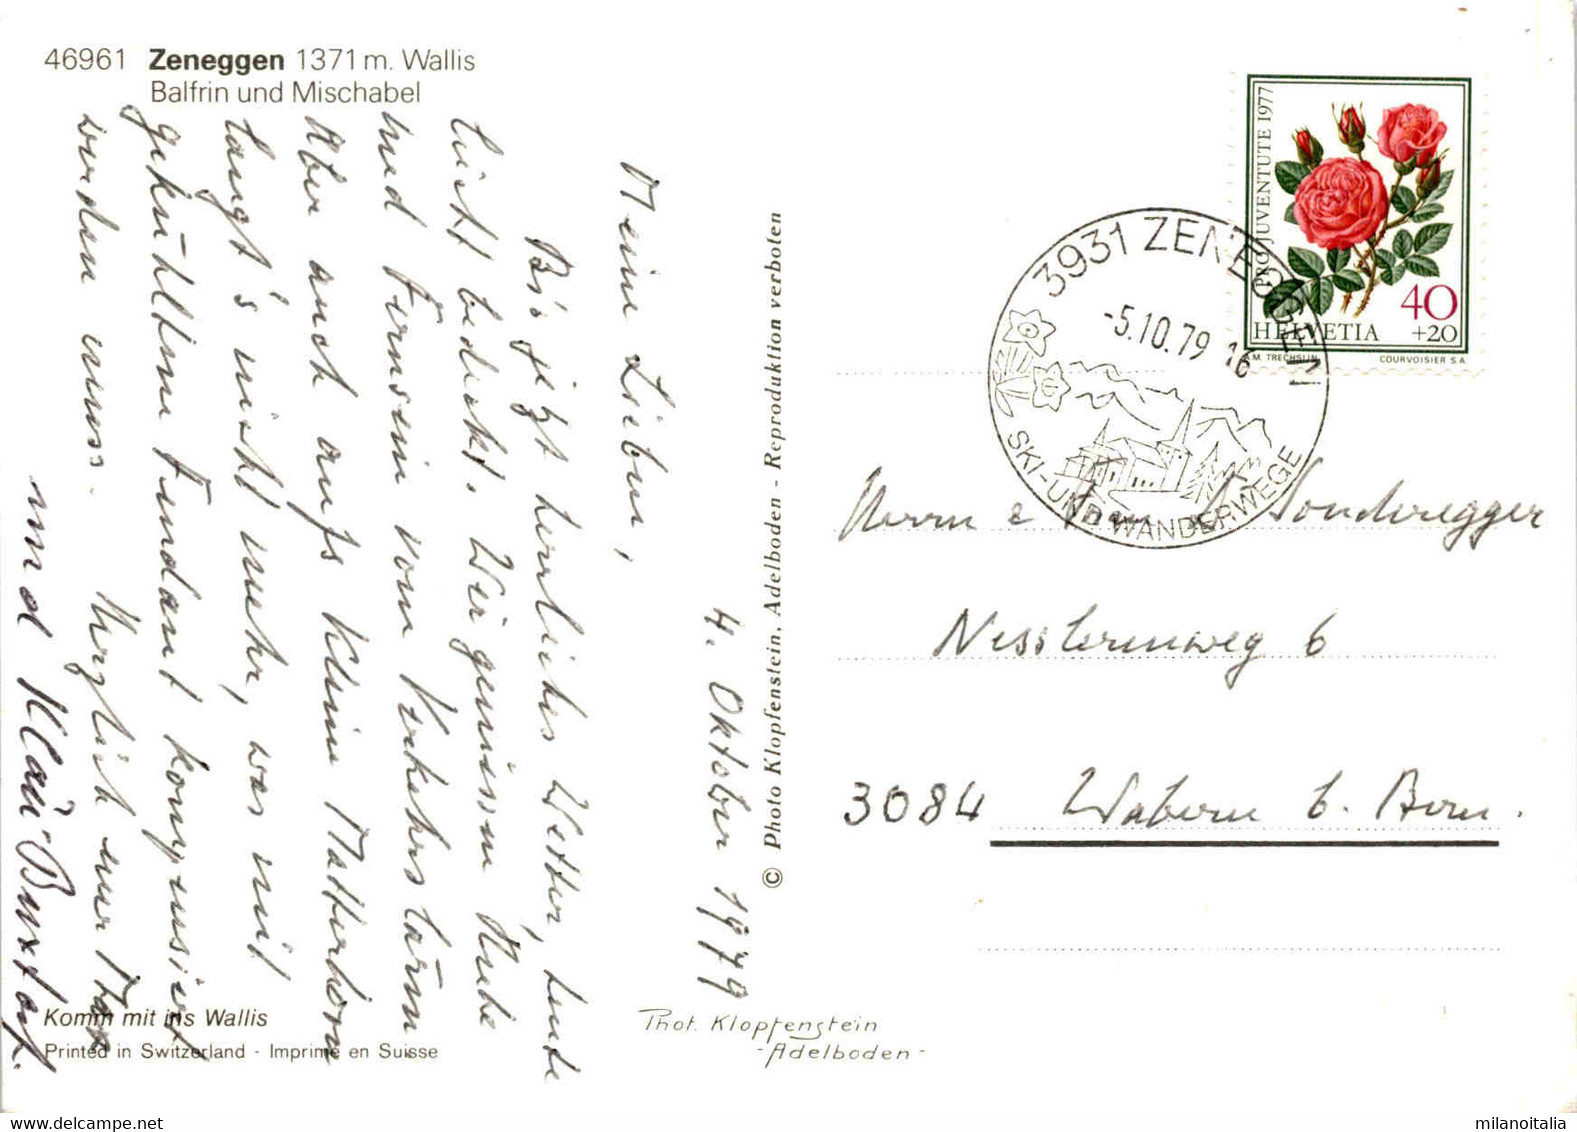 46961 Zeneggen 1371 m. Wallis
Balfrin und Mischabel
4. Oktober 1979
Meine Lieben,
Bis jetzt herrliches Wetter, heute
leicht bedeckt. Wir geniessen Ruhe
und Fernsein vom Verkehrslärm
Aber auch aufs Kleine Matterhorn
langt's nicht mehr, was mit
gekühltem Fendant kompensiert
werden muss. Herzlich eure
und Kläui-
Komm mit ins Wallis
Printed in Switzerland - Imprimé en Suisse
© Photo Klopfenstein, Adelboden - Reproduktion verboten
Phot. Klopfenstein
- Adelboden -
PRO JUVENTUTE 1977
40
+20
HELVETIA
A.M. TRECHSLIN COURVOISIER S A
3931 ZENEGGEN
-5.10.79 16
SKI-UND WANDERWEGE
Herrn & Frau Sonderegger
Nesslerenweg 6
3084 Wabern b. Bern.
www.delcampe.net
milanoitalia